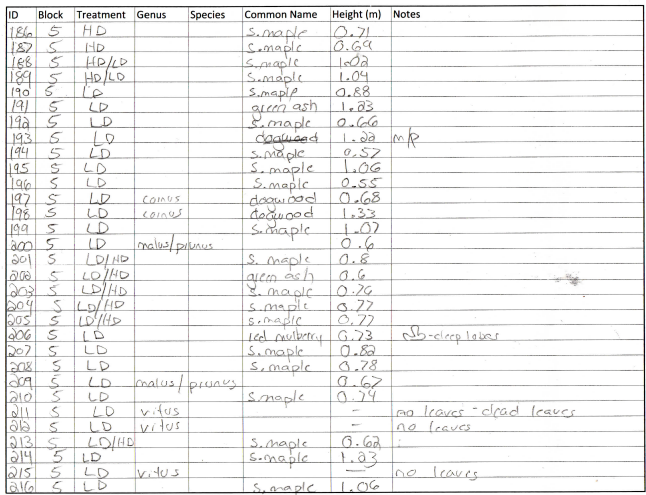 ID Block Treatment Genus Species Common Name Height (m) Notes
186 5 HD S. maple 0.71
187 5 HD S. maple 0.69
188 5 HD/LD S. maple 1.02
189 5 HD/LD S. maple 1.04
190 5 LD S. maple 0.88
191 5 LD green ash 1.23
192 5 LD S. maple 0.66
193 5 LD dogwood 1.22 m/p
194 5 LD S. maple 0.57
195 5 LD S. maple 1.06
196 5 LD S. maple 0.55
197 5 LD cornus dogwood 0.68
198 5 LD cornus dogwood 1.33
199 5 LD S. maple 1.07
200 5 LD malus/prunus 0.6
201 5 LD/HD S. maple 0.8
202 5 LD/HD green ash 0.6
203 5 LD/HD S. maple 0.76
204 5 LD/HD S. maple 0.77
205 5 LD/HD S. maple 0.77
206 5 LD red mulberry 0.73 -deep lobes
207 5 LD S. maple 0.82
208 5 LD S. maple 0.78
209 5 LD malus/prunus 0.67
210 5 LD S. maple 0.74
211 5 LD vitus - no leaves - dead leaves
212 5 LD vitus - no leaves
213 5 LD/HD S. maple 0.62
214 5 LD S. maple 1.23
215 5 LD vitus - no leaves
216 5 LD S. maple 1.06